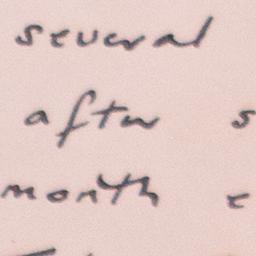 several
after s
month